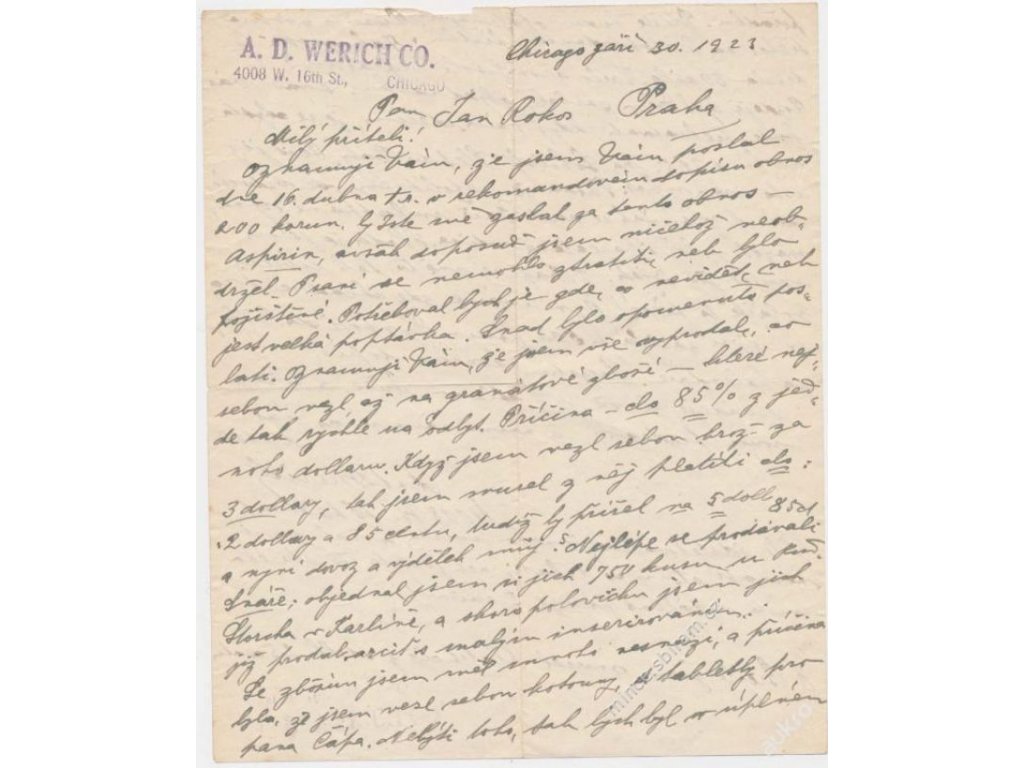 A. D. WERICH CO.
4008 W. 16th St., CHICAGO
Chicago září 30. 1923
Pan Jan Rokos Praha
Milý příteli!
Oznamuji Vám, že jsem Vám poslal
dne 16. dubna t.r. v rekomandovém dopisu obnos
200 korun. by jste mě zaslal za tento obnos –
Aspirin, avšak doposuď jsem ničehož neob-
držel. Psaní se nemohlo ztratiti, neb bylo
pojištěné. Potřeboval bych je zde, co nevidět, neb
jest velká poptávka. Snad bylo opomenuto pos-
lati. Oznamuji Vám, že jsem vše vyprodal, co
sebou vezl, až na granátové zboží – které nej-
de tak rychle na odbyt. Příčina – clo 85% z jed-
noho dollaru. Když jsem vezl sebou brož za
3 dollary, tak jsem musel z něj platiti clo:
2 dollary a 85 centu, tudíž by přišel na 5 doll 85 ct
a nyní dovoz a výdělek můj? Nejlépe se prodávali
Snáře; objednal jsem si jich 750 kusu u
Storcha v Karlíně, a skoro polovičku jsem jich
již prodal, arciť s malým inserirováním.
Se zbožím jsem měl mnoho nesnází, a příčina
byla, že jsem vezl sebou kotouny, tabletky pro
pana Čápa. Nebýti toho, tak bych byl v úplném
mince.sbiram.cz
aukro